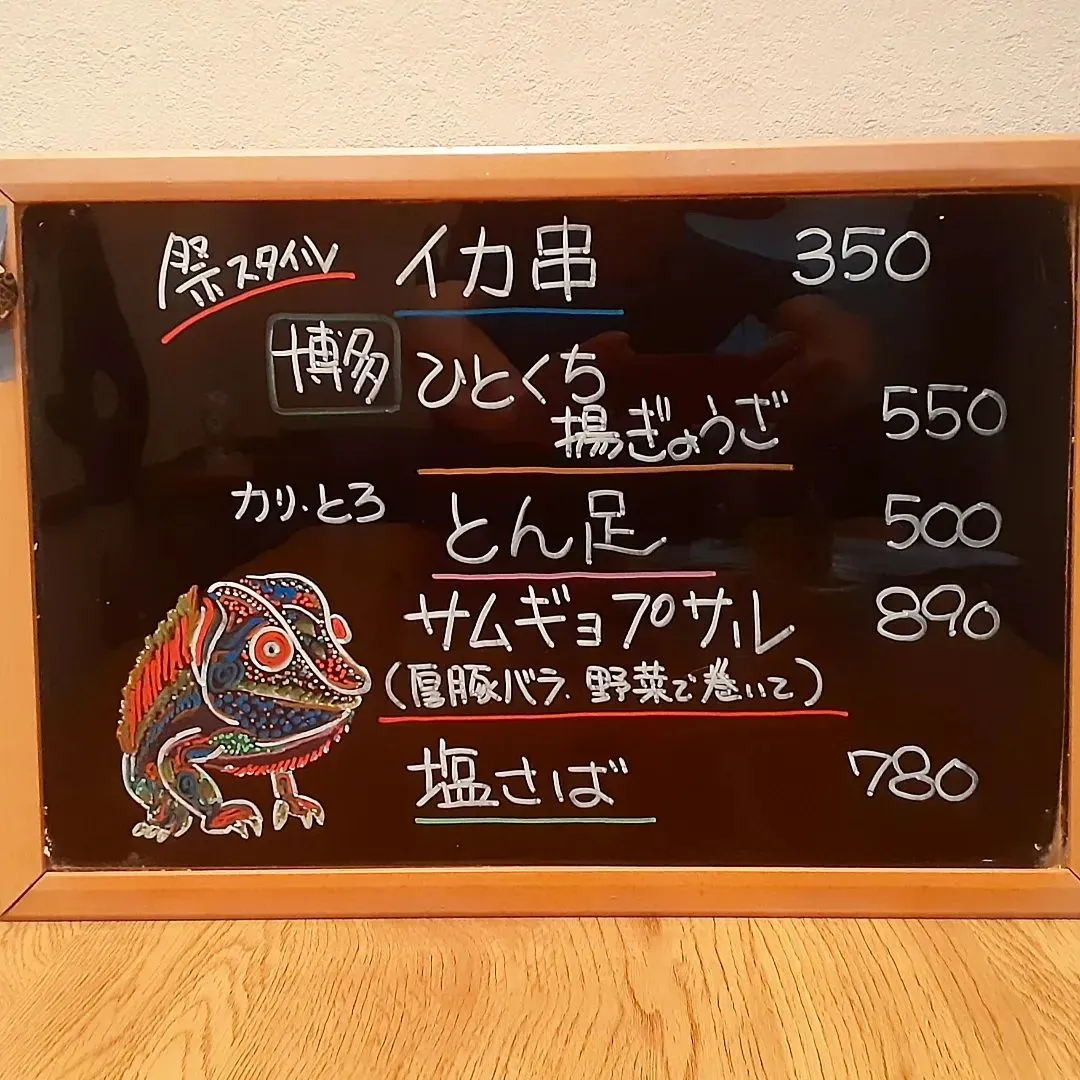 祭スタイル イカ串 350
博多 ひとくち
揚ぎょうざ 550
カリ・とろ とん足 500
サムギョプサル 890
(厚豚バラ、野菜で巻いて)
塩さば 780